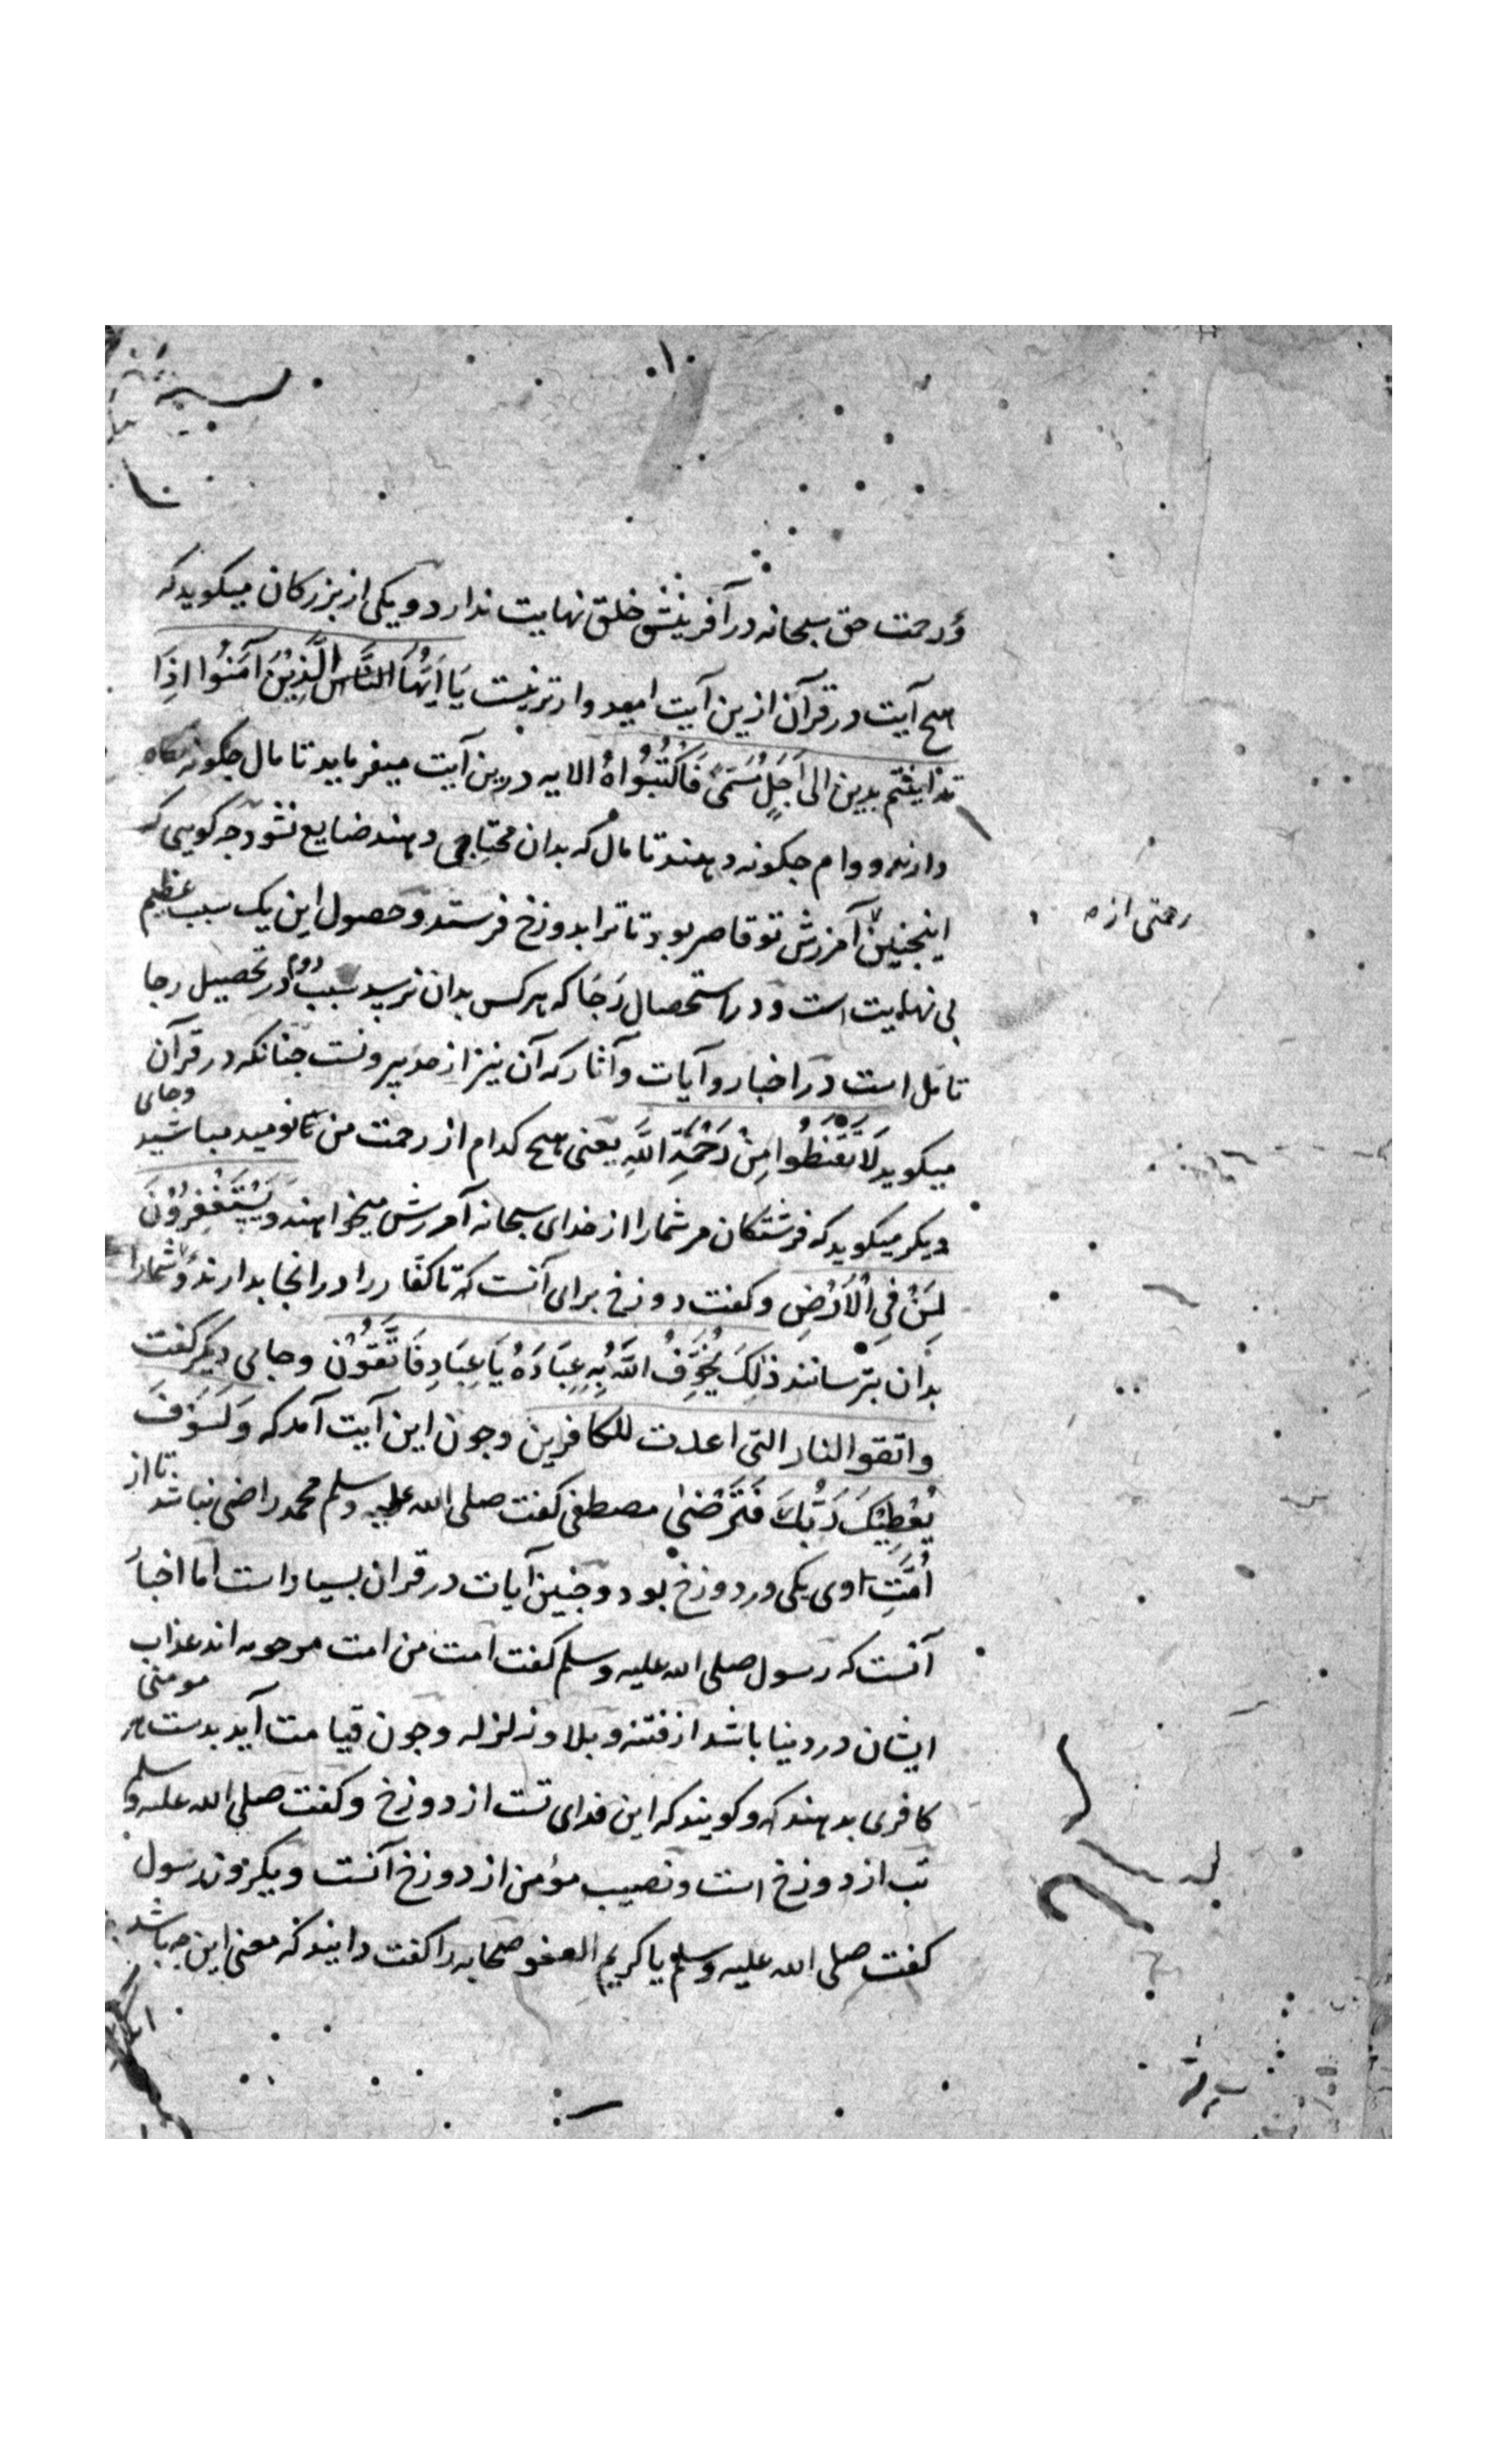 و رحمت حق سبحانه در آفرینش خلق نهایت ندارد و یکی از بزرکان میکوید که
هیچ آیت در قرآن ازین آیت امیدوارتر نیست یَا اَیُّهَا النَّاس الَّذِیْنَ آمَنُوا اِذَا
تداینتم بدین الی اَجَلٍ مُسَمًّی فَاکْتُبُوْاهُ الایه درین آیت میفرماید تا مال جکونه نکاه
دارند و وام جکونه دهند تا مال که بدان محتاجی دهند ضایع نشود جه کویی که
اینجنین آمرزش تو قاصر بود تا ترا بدوزخ فرستد و حصول این یک سبب عظیم
بی نهایت است و در استحصال رَجَا که هر کس بدان نرسد سبب دوم در تحصیل رجا
تامل است در اخبار و آیات و آثار که آن نیز از حد بیرونست جنانکه در قرآن
میکوید لَا تَقْنَطُوا مِنْ رَحْمَةِ اللَّهِ یعنی هیچ کدام از رحمت من نانومید مباشید وجای
دیکر میکوید که فرشتکان مر شمارا از خدای سبحانه آمرزش میخواهند وَیَسْتَغْفِرُوْنَ
لِمَنْ فِی الْاَرْضِ و کفت دوزخ برای آنست که تا کفار را در انجا بدارند و شمارا
بدان بترسانند ذٰلِکَ یُخَوِّفُ اللَّهُ بِهِ عِبَادَهُ یَا عِبَادِ فَاتَّقُوْنِ و جای دیکر کفت
واتقو النار التی اعدت للکافرین و جون این آیت آمد که وَلَسَوْفَ
یُعْطِیْکَ رَبُّکَ فَتَرْضٰی مصطفی کفت صلی الله علیه وسلم محمد راضی نباشد تا از
اُمَّتِ اوی یکی در دوزخ بود و جنین آیات در قران بسیار است اما اخبار
آنست که رسول صلی الله علیه وسلم کفت امت من امت مرحومه اند عذاب
ایشان در دنیا باشد از فتنه و بلا و زلزله و جون قیامت آید بدست هر مومنی
کافری بدهند که و کویند که این فدای تست از دوزخ و کفت صلی الله علیه وسلم
تب از دوزخ است و نصیب مؤمن از دوزخ آنست و یکروز رسول
کفت صلی الله علیه وسلم یا کریم العفو صحابه را کفت دانیند که معنی این جه باشد
رحمتی از